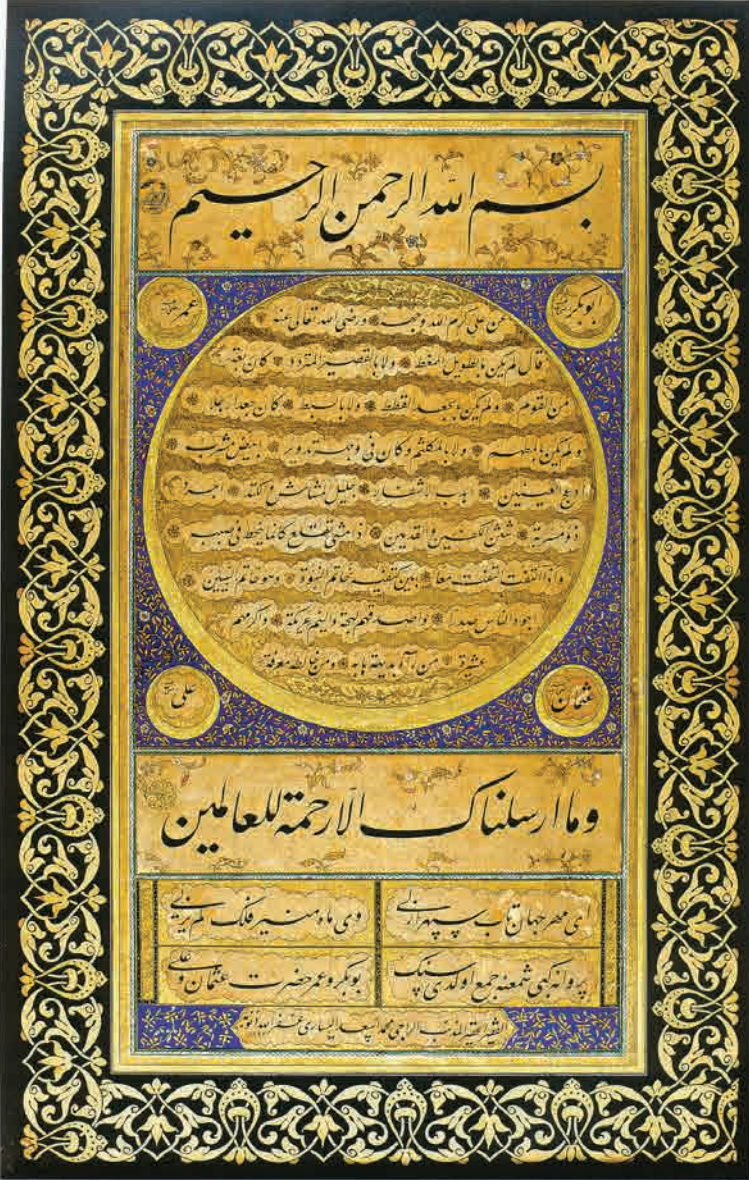 بسم الله الرحمن الرحيم
ابوبكر عمر
عن على كرم الله وجهه ورضى الله تعالى عنه
قال لم يكن بالطويل الممغط ولا بالقصير المتردد كان ربعة
من القوم ولم يكن بالجعد القطط ولا بالسبط كان جعدا رجلا
ولم يكن بالمطهم ولا بالمكلثم وكان فى وجهه تدوير ابيض مشرب
ادعج العينين اهدب الاشفار جليل المشاش والكتد اجرد
ذو مسربة شثن الكفين والقدمين اذا مشى تقلع كانما ينحط فى صبب
واذا التفت التفت معا بين كتفيه خاتم النبوة وهو خاتم النبيين
اجود الناس صدرا واصدقهم لهجة والينهم عريكة واكرمهم
عشيرة من رآه بديهة هابه ومن خالطه معرفة
عثمان على
وما ارسلناك الا رحمة للعالمين
اى مهر جهان تاب سپهر ازلى وى ماه منير فلك لم يزلى
پروانه كبى شمعنه جمع اولدى سنك بوبكر و عمر حضرت عثمان و على
الفقير الحقير المذنب الراجى محمد اسعد اليسارى غفر الله ذنوبه